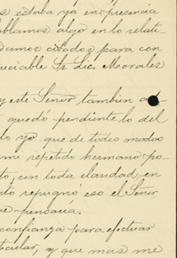 s estaba yo in presencia
blamos algo en lo relati
damos citados para con
reciable Sr Lic. Morales
y este Señor tambien
quedó pendiente lo del
to ya que de todos modos
mi repetido hermano po
to, con toda claridad, en
to repugnó eso el Señor
confianza para efectuar
ticular, y que mas me